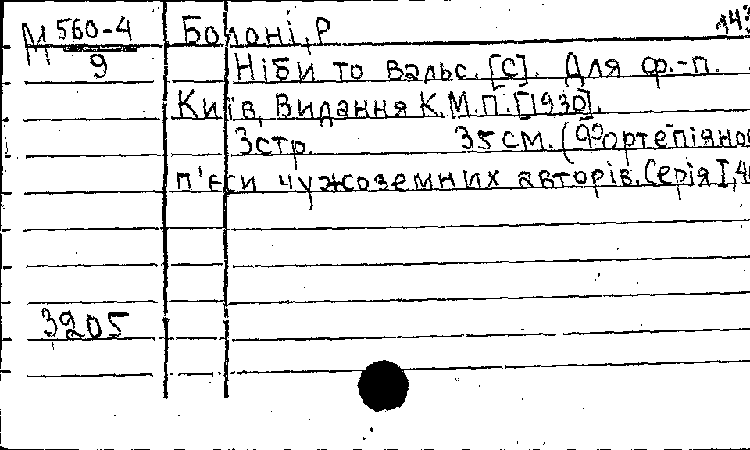 М 560-4
9
Болоні, Р
143
Ніби то вальс. [С]. Для ф.-п.
Київ, Видання К.М.П. [1930].
3стр. 35 см. (Фортепіяно
п'єси чужоземних авторів. Серія I, 4
3205